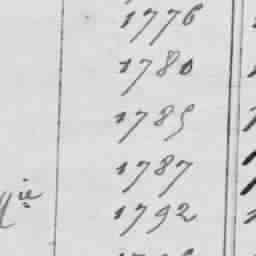 1776
1780
1785
1787
1792